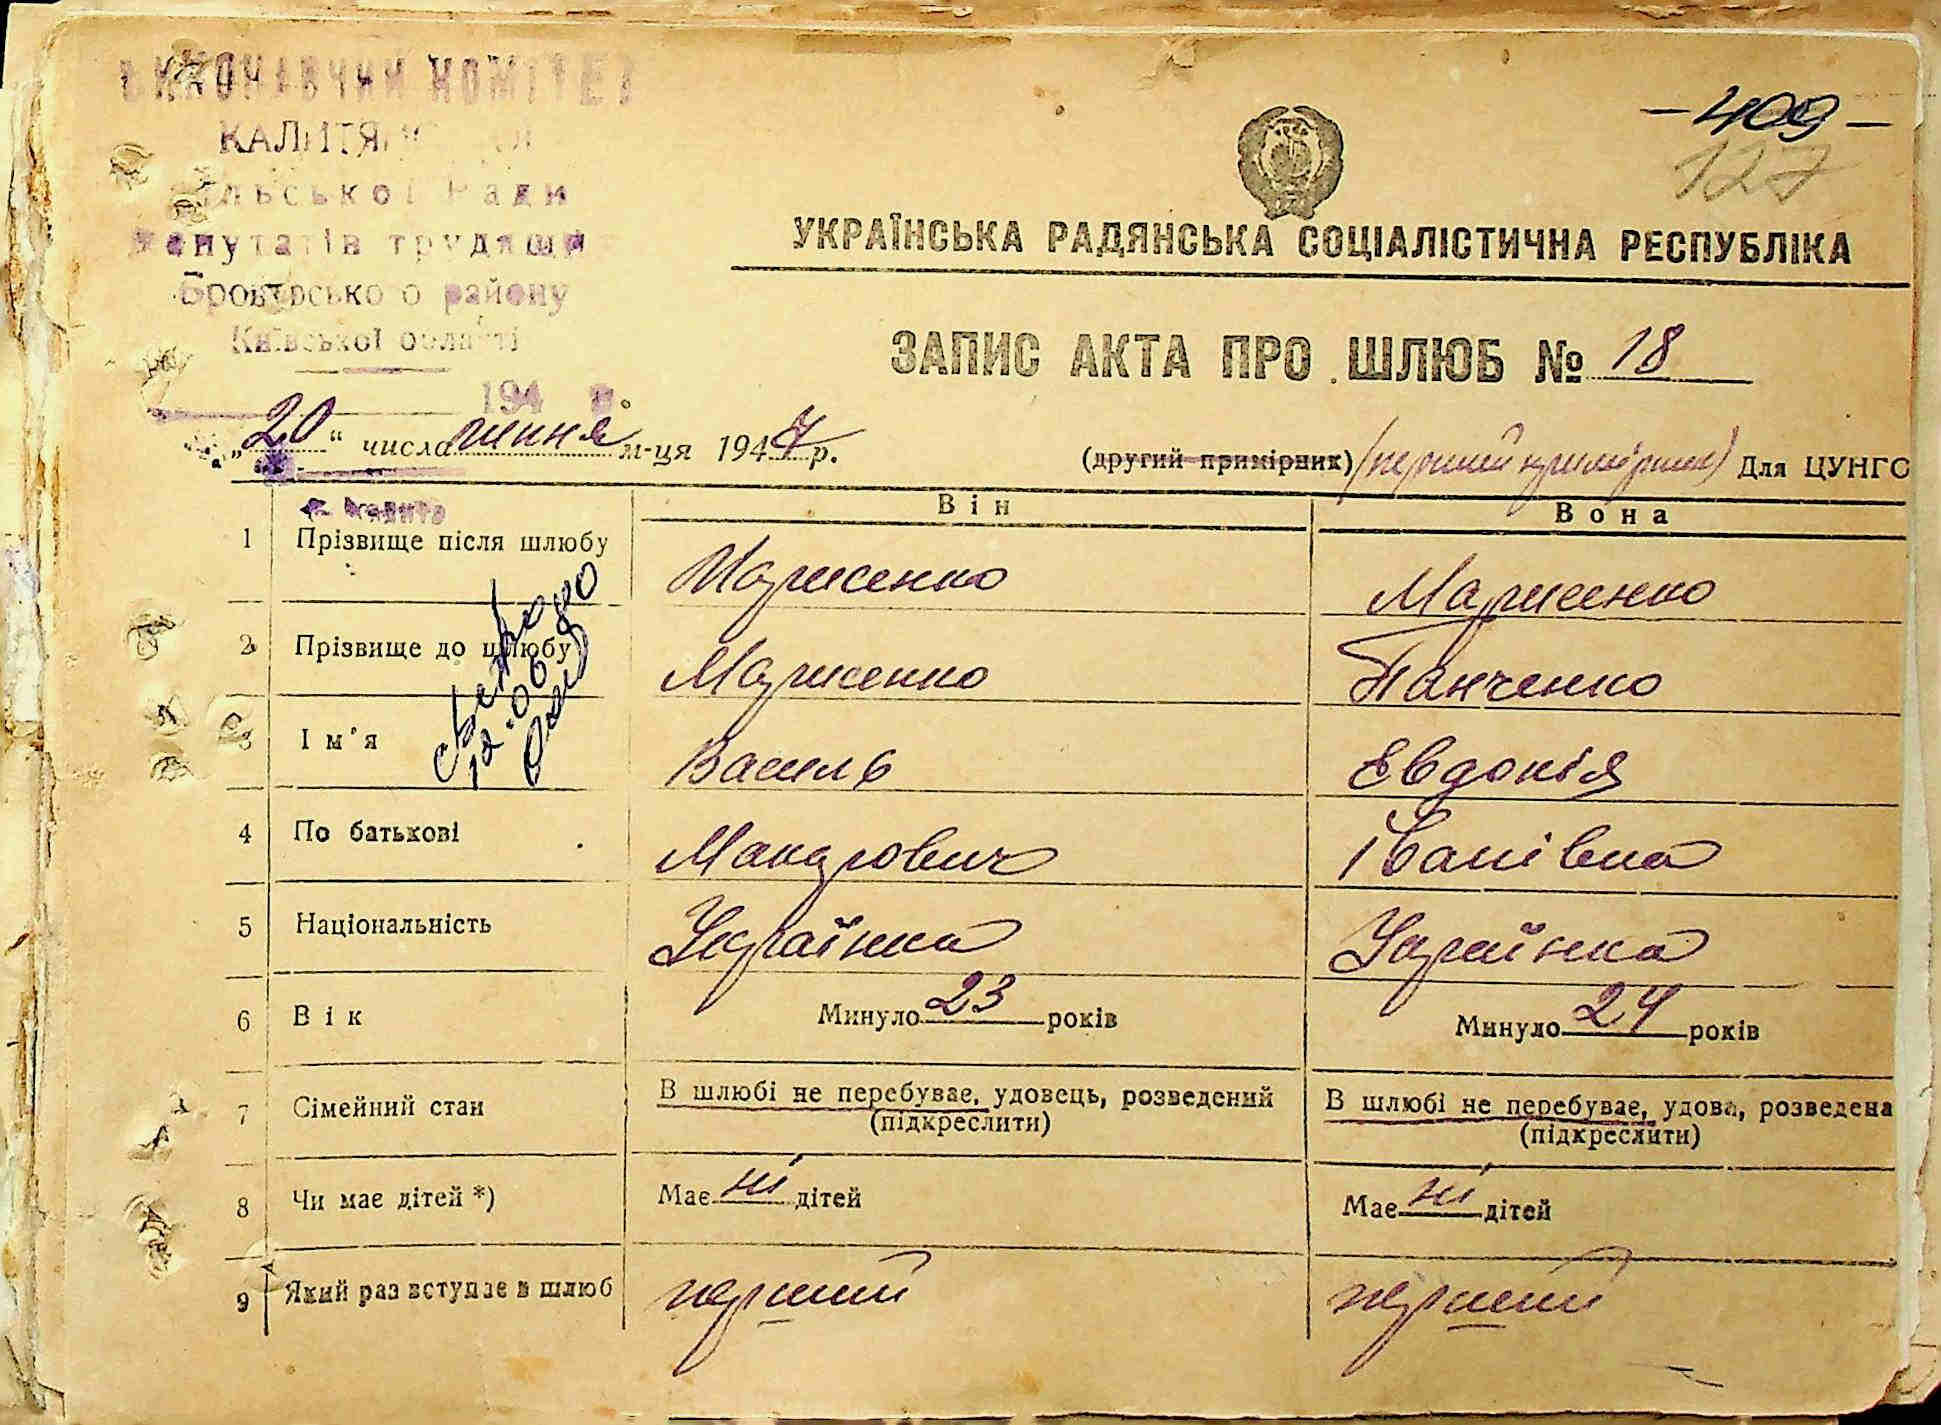 ВИКОНАВЧИЙ КОМІТЕТ
КАЛИТЯНСЬКОЇ
сільської Ради
депутатів трудящих
Броварського району
Київської області
194 р.
- 409 -
127
УКРАЇНСЬКА РАДЯНСЬКА СОЦІАЛІСТИЧНА РЕСПУБЛІКА
ЗАПИС АКТА ПРО ШЛЮБ № 18
„20“ числа липня м-ця 1947 р.
(другий примірник) (перший примірник) Для ЦУНГО
с. Калита
Він Вона
1 Прізвище після шлюбу Марисенко Марисенко
2 Прізвище до шлюбу Марисенко Панченко
3 Ім'я Василь Евдокія
4 По батькові Макарович Іванівна
5 Національність Українка Українка
6 Вік Минуло 23 років Минуло 24 років
7 Сімейний стан В шлюбі не перебуває, удовець, розведений (підкреслити) В шлюбі не перебуває, удова, розведена (підкреслити)
8 Чи має дітей *) Має ні дітей Має ні дітей
9 Який раз вступає в шлюб перший перший